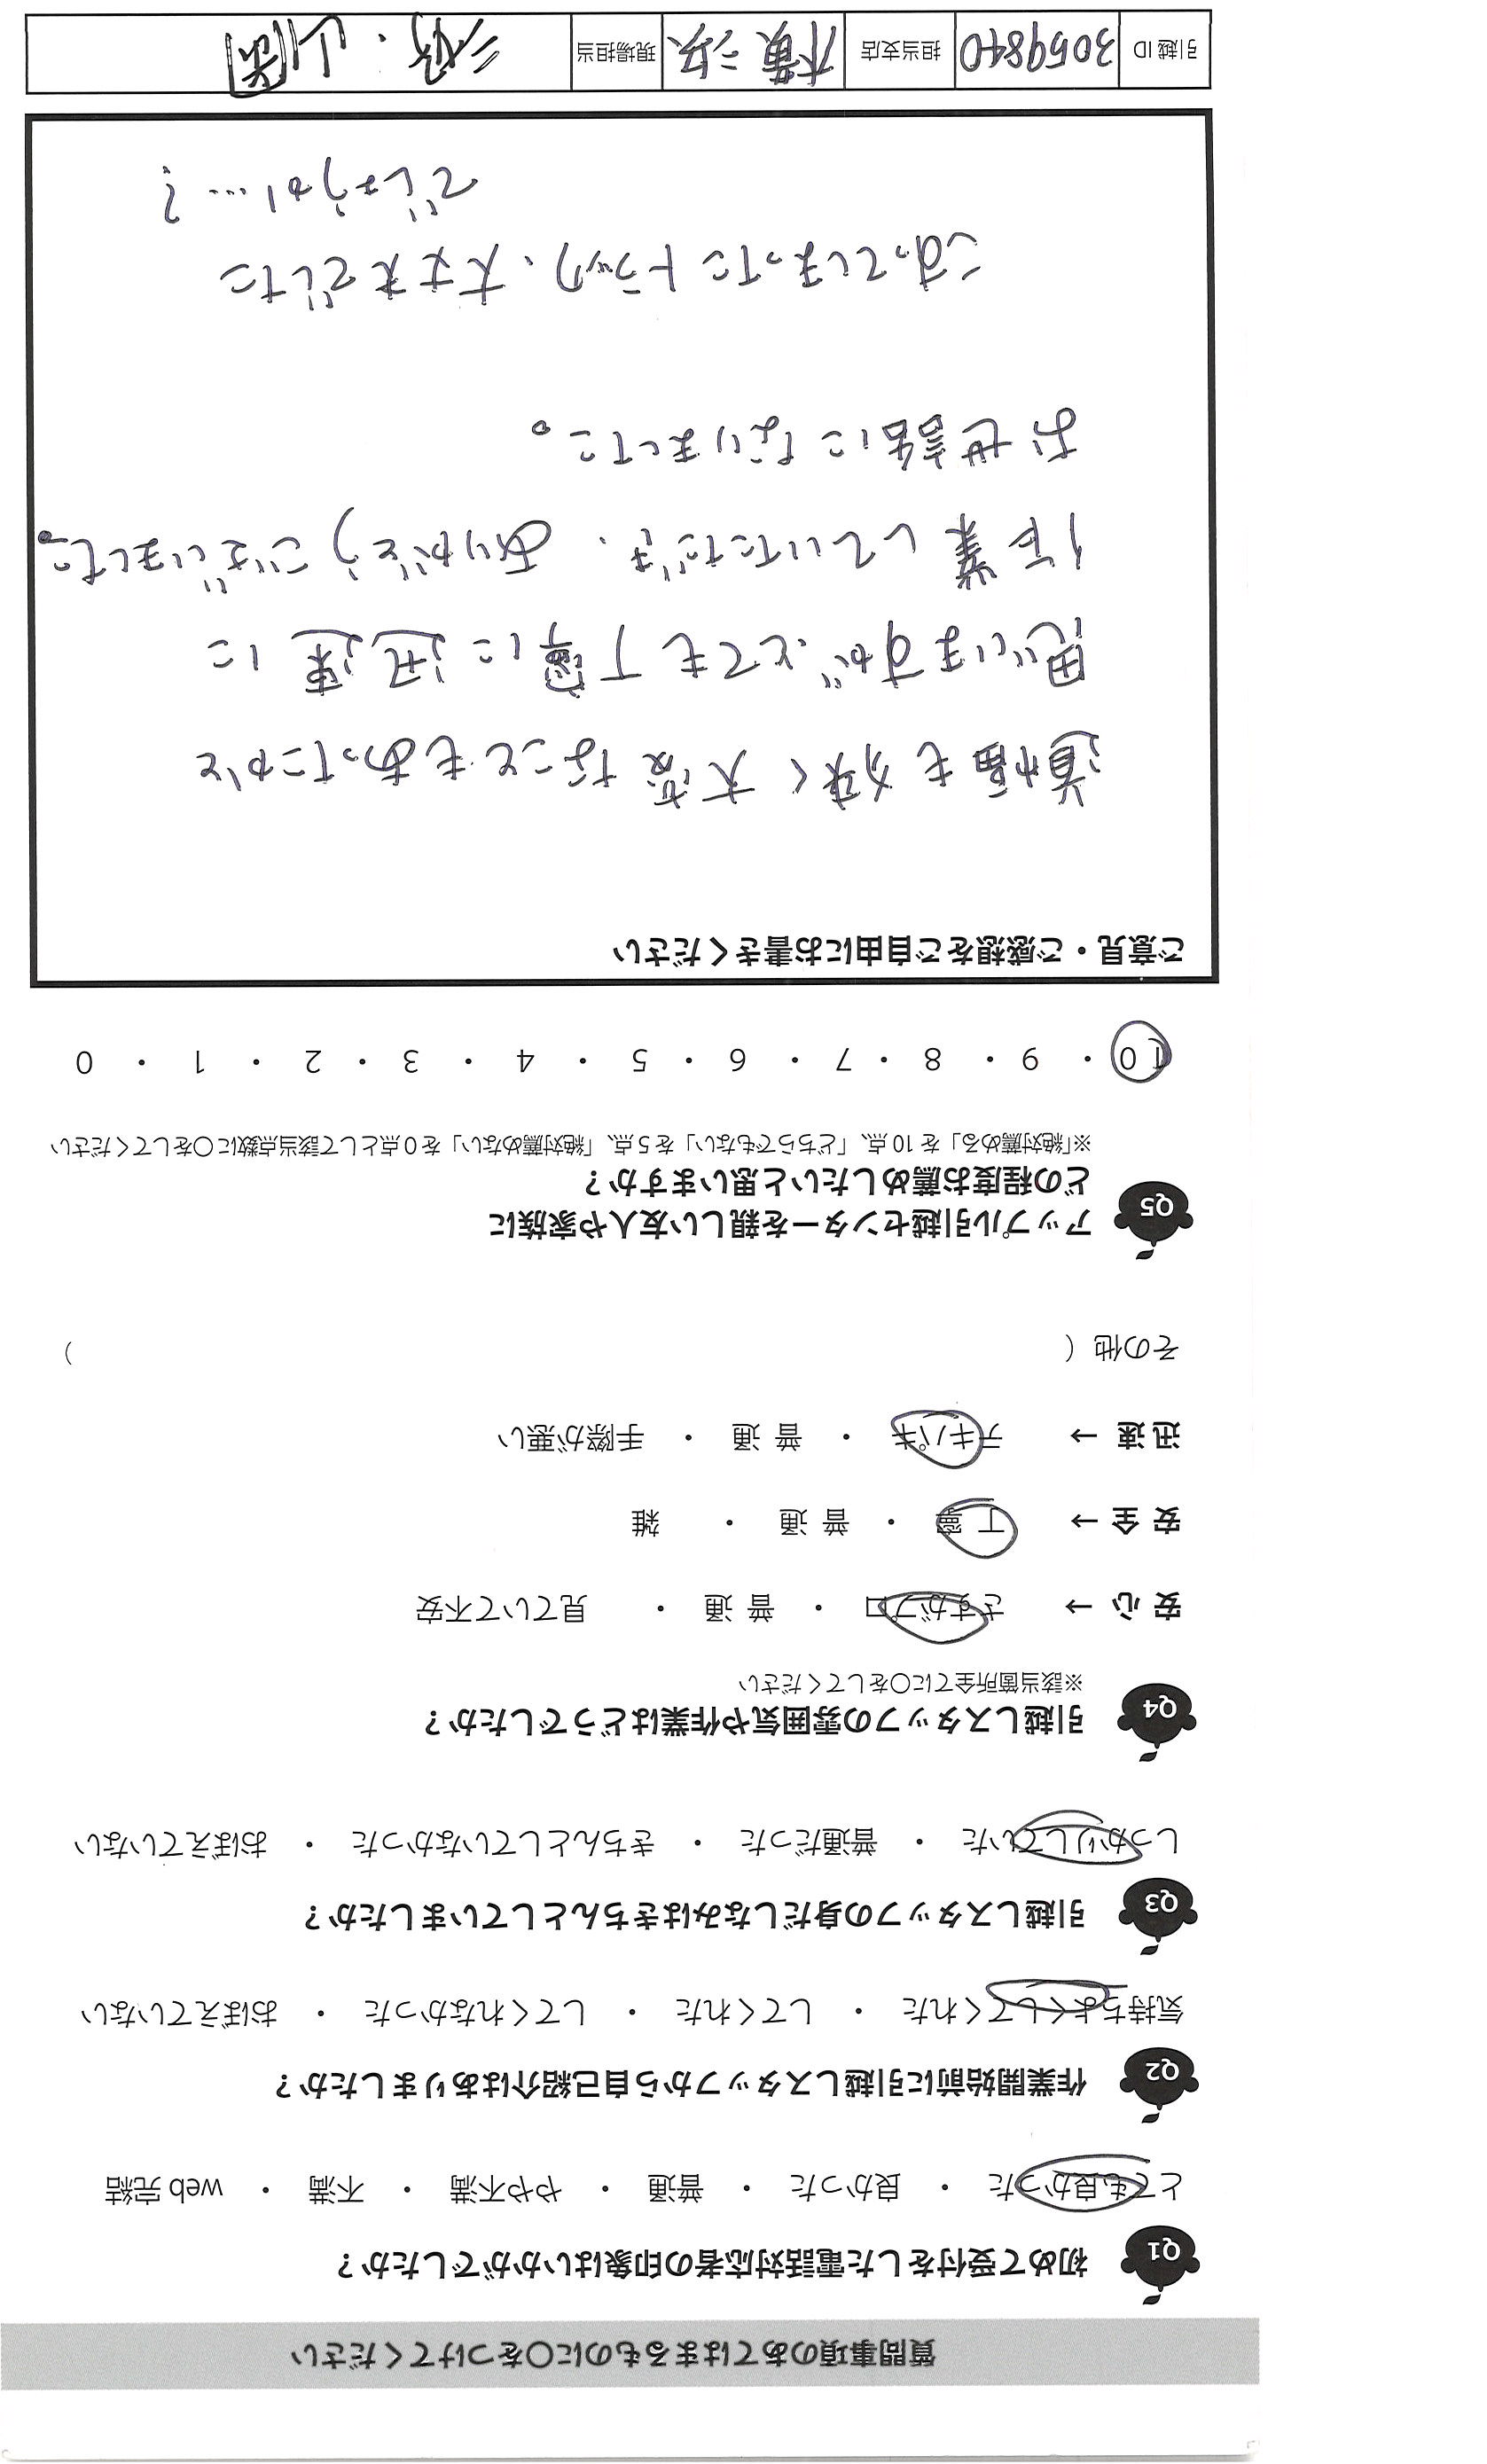 質問事項のあてはまるものに○をつけてください
Q1 初めて受付をした電話対応者の印象はいかがでしたか？
とても良かった ・ 良かった ・ 普通 ・ やや不満 ・ 不満 ・ web 完結
Q2 作業開始前に引越しスタッフから自己紹介はありましたか？
気持ちよくしてくれた ・ してくれた ・ してくれなかった ・ おぼえていない
Q3 引越しスタッフの身だしなみはきちんとしていましたか？
しっかりしていた ・ 普通だった ・ きちんとしていなかった ・ おぼえていない
Q4 引越しスタッフの雰囲気や作業はどうでしたか？
※該当箇所全てに○をしてください
安 心 → さすがプロ ・ 普 通 ・ 見ていて不安
安 全 → 丁 寧 ・ 普 通 ・ 雑
迅 速 → テキパキ ・ 普 通 ・ 手際が悪い
その他（ ）
Q5 アップル引越センターを親しい友人や家族に
どの程度お薦めしたいと思いますか？
※「絶対薦める」を 10 点、「どちらでもない」を 5 点、「絶対薦めない」を 0 点として該当点数に○をしてください
10 ・ 9 ・ 8 ・ 7 ・ 6 ・ 5 ・ 4 ・ 3 ・ 2 ・ 1 ・ 0
ご意見・ご感想をご自由にお書きください
道幅も狭く大変なこともあったかと
思いますが、とても丁寧に迅速に
作業していただき、ありがとうございました。
お世話になりました。
こすってしまったトラック、大丈夫でした
でしょうか…？
引越 ID 3059840 担当支店 現場担当